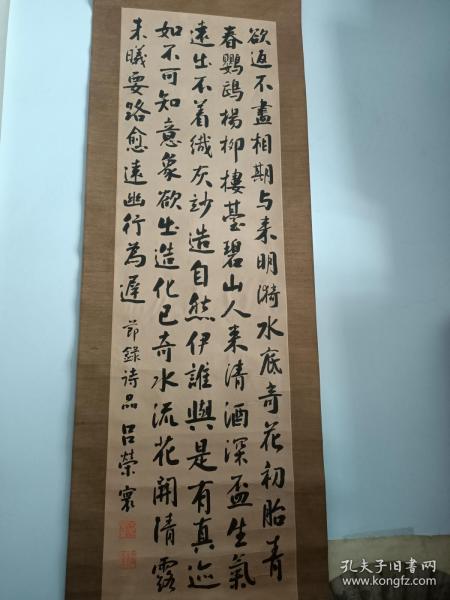 欲返不盡相期与来明漪水底奇花初胎青
春鸚鵡楊柳樓臺碧山人来清酒深盃生氣
遠出不着纖灰妙造自然伊誰與是有真迹
如不可知意象欲出造化已奇水流花開清露
未曦要路愈遠幽行為遲 節錄詩品 吕榮寰
孔夫子旧书网